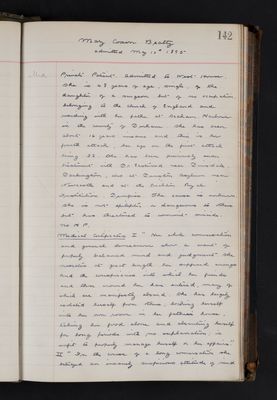 142
Mary Cowan Beatty
admitted May 13th 1895
Private Patient. Admitted to West House.
She is 48 years of age, single, of the
daughter of a surgeon but of no occupation
belonging to the Church of England and
residing with her father at Seaham Harbour
in the county of Durham. She has been
about 16 years insane and this is her
fourth attack, her age on the first attack
being 32. She has been previously under
treatment with Dr. near Dinsdale,
Darlington, also at Dunston Asylum near
Newcastle and at the Crichton Royal
Institution Dumfries. The cause is unknown
She is not epileptic or dangerous to others
but has threatened to commit suicide.
no H.P.
Medical Certificates I " Her whole conversation
and general demeanour show a want of
properly balanced mind and judgment she
narrates at great length her supposed wrongs
and the conspiracies into which her friends
and those around her have entered, many of
which are manifestly absurd. She has largely
isolated herself from others, locking herself
into her own room in her fathers house,
taking her food alone and absenting herself
for long periods with no explanation, is
unfit to properly manage herself or her affairs "
II " In the course of a long conversation she
betrayed an insanely suspicious attitude of mind